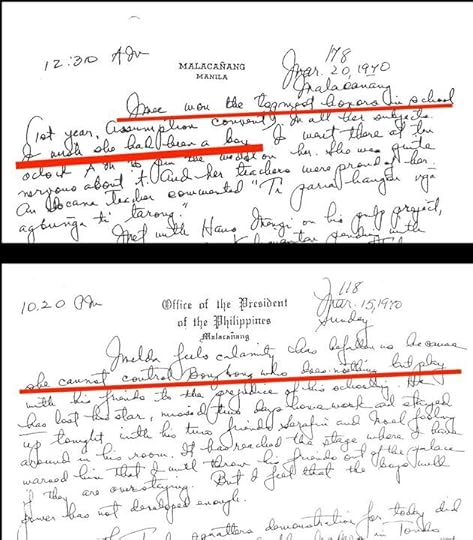 12:30 AM
178
MALACAÑANG
MANILA
Mar. 20, 1970
Malacañang
Imee won the topmost honors in school
(1st year, Assumption Convent) in all her subjects.
I wish she had been a boy. I went there at ten
oclock AM to pin the medal on her. She was quite
nervous about it. And her teachers were proud of her.
An Ilocana teacher commented "Ti paria hangan nga
agbunga ti tarong."
Met with Hans Menzi on his pulp project,
pending in the
10.20 PM
118
Office of the President
of the Philippines
Malacañang
Mar. 15, 1970
Sunday
Imelda feels calamity has befallen us because
she cannot control Bongbong who does nothing but play
with his friends to the prejudice of his schooling. He
has lost his star, missed two days home work and stayed
up tonight with his two friends Serafin and Noel fooling
around in his room. It has reached the stage where I have
warned him that I will throw his friends out of the palace
if they are overstaying. But I feel that the boys will
power has not developed enough.
demonstration for today did
in Tondo